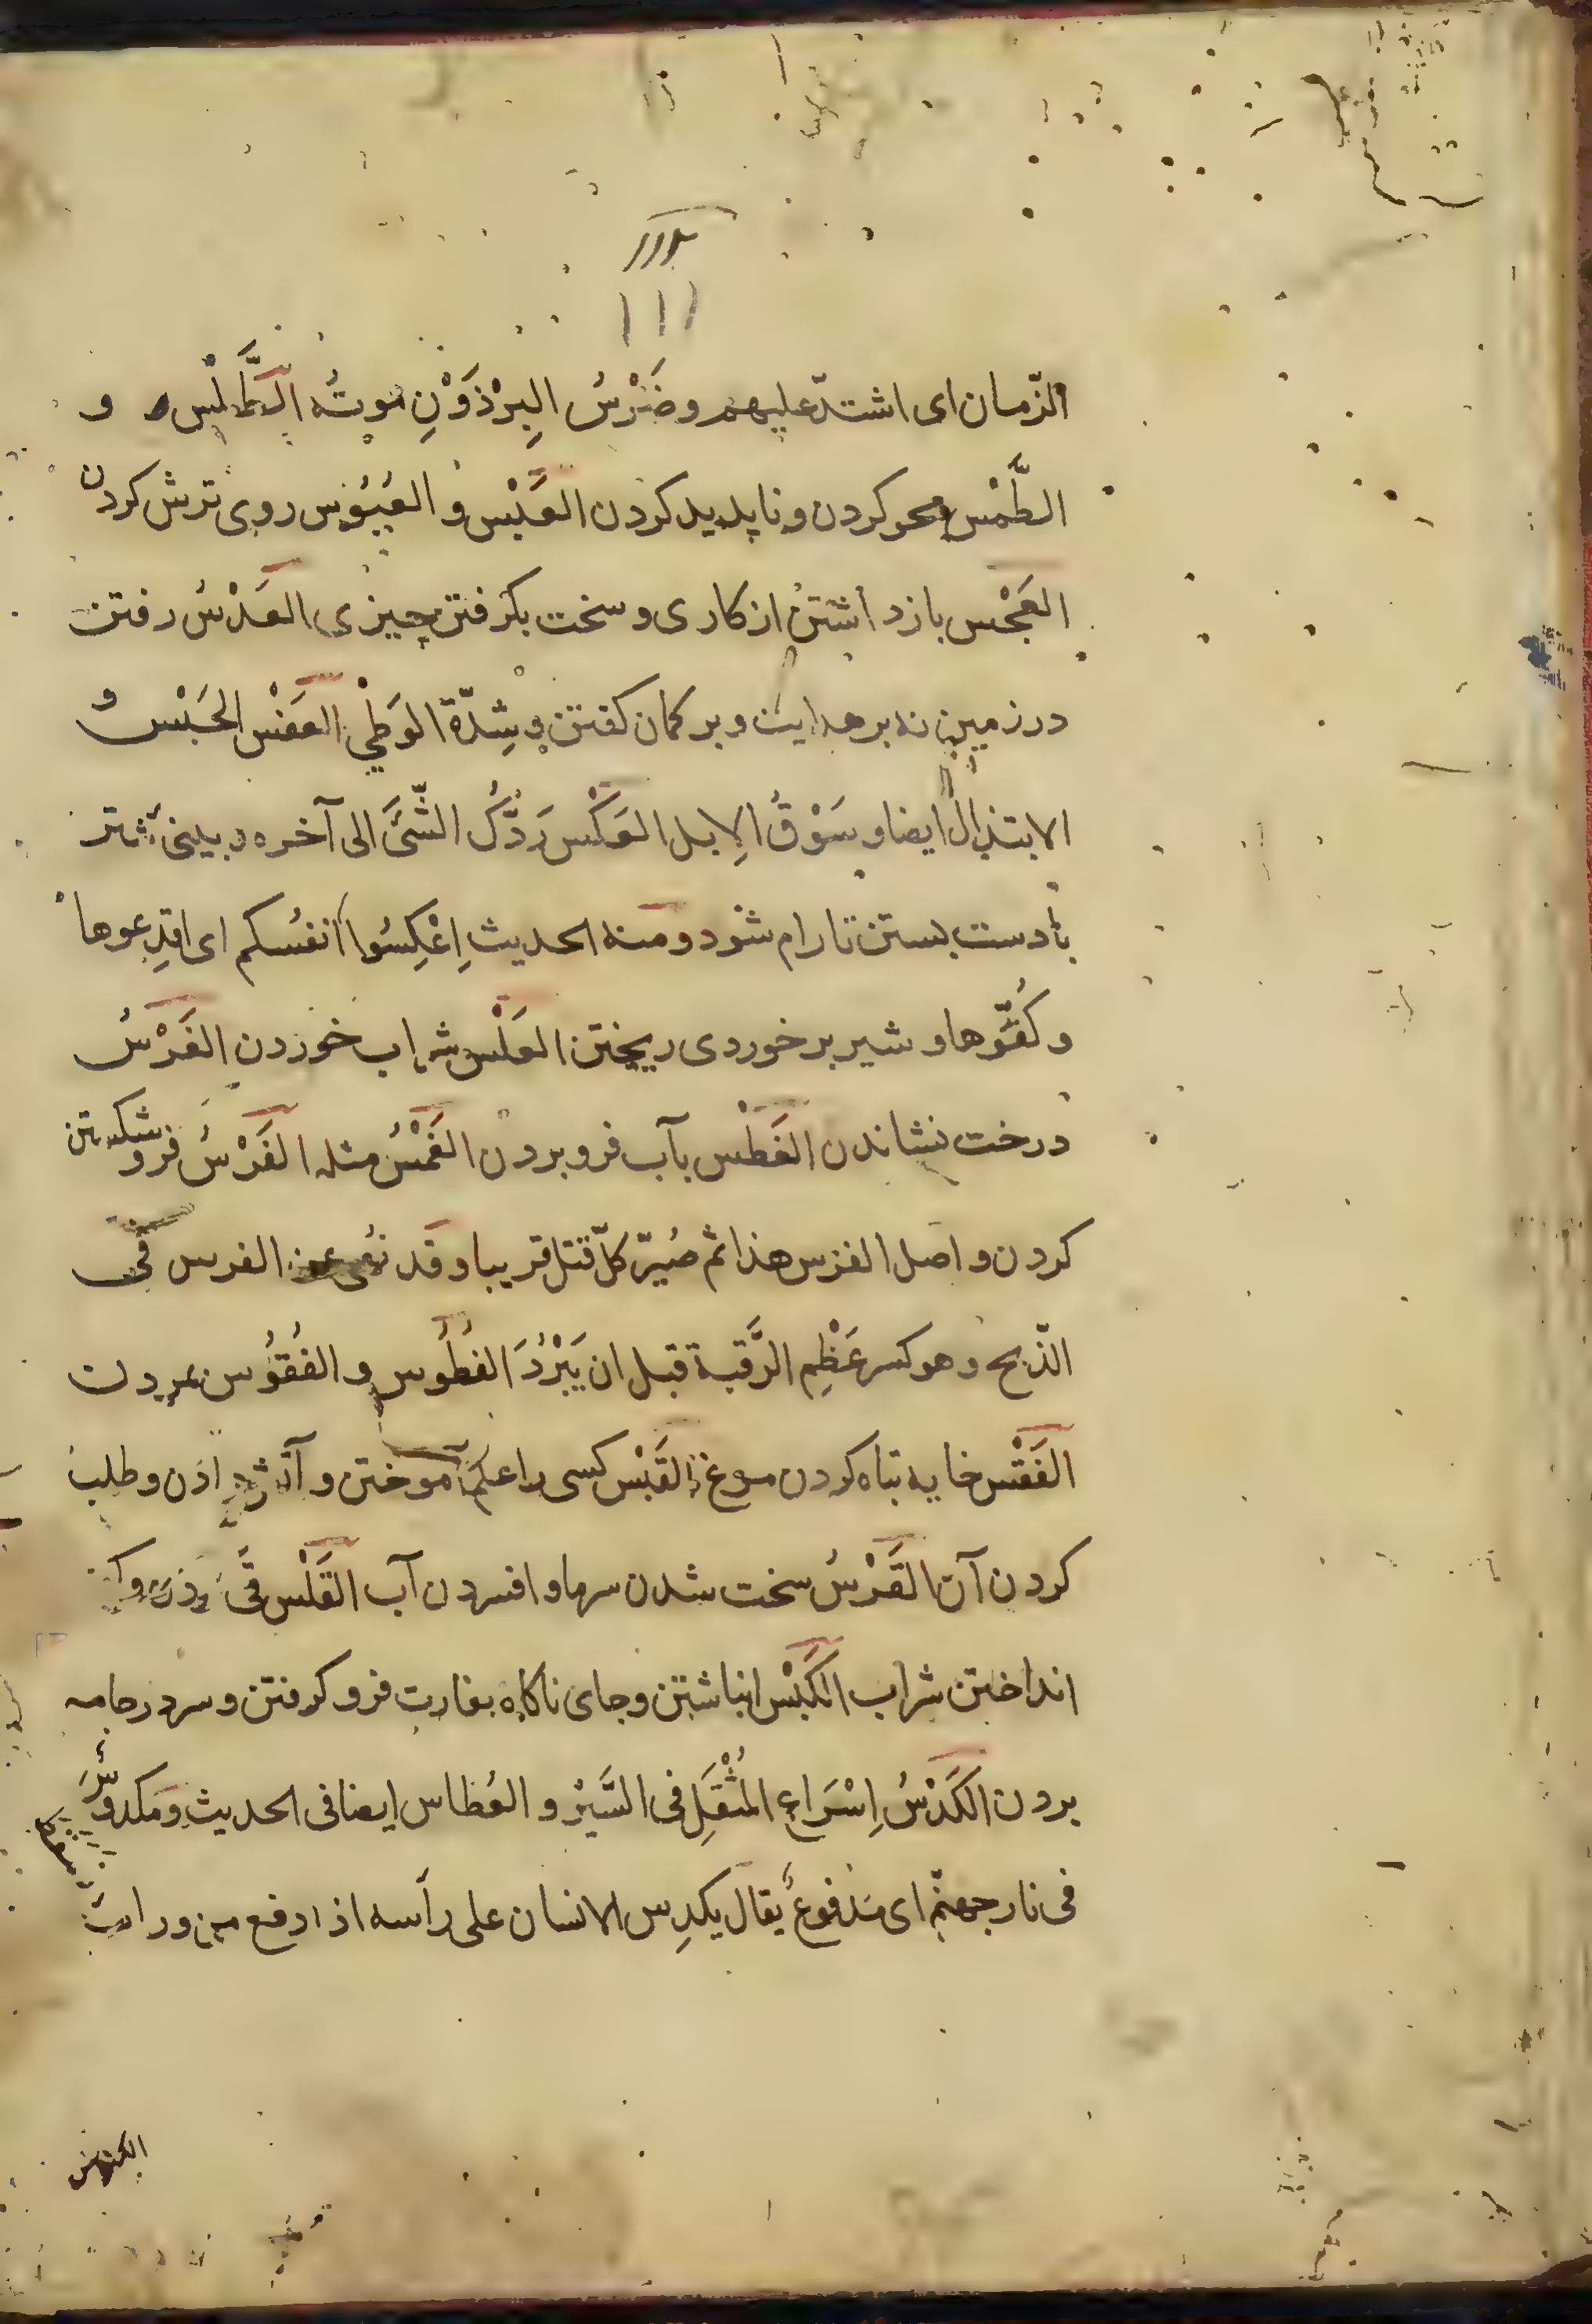 ١١١
الزّمان ای اشتدّ علیهم و ضَرْسُ البِرْذَوْنِ موته الطَّلْس و
الطَّمْس محو کردن و ناپدید کردن العَبْس و العُبُوْس روی ترش کردن
العَجْس باز داشتن از کاری و سخت بکرفتن چیزی العَدْسُ رفتن
در زمین نه بر هدایت و بر کمان کفتن و شِدّة الوَطْیِ العَفْس الحَبْس و
الابتذال ایضا و سَوْقُ الاِبل العَکْس رَدُّکَ الشَّیَٔ الی آخره و بینیٔ شتر
با دست بستن تا رام شود و منه الحدیث اِعْکِسُوا انفسُکم ای اقدِعوها
و کُفُّوها و شیر بر خوردی ریختن العَلْس شراب خوردن الغَرْسُ
درخت نشاندن الغَطْس بآب فرو بردن الغَمْسُ مثله الفَرْسُ فرو شکستن
کردن و اصل الفرس هذا ثم صُیّر کلّ قتل فریسا و قد نهی عن الفرس فی
الذّبح و هو کسر عَظْمِ الرَّقبة قبل ان یَبْرُدَ الفُطُوْس و الفُقُوْس مردن
الفَقْس خایه تباه کردن مرغ القَبْس کسی را علم آموختن و آتش دادن و طلب
کردن آن القَرْسُ سخت شدن سرما و افسردن آب القَلْس قَیَٔ
انداختن شراب الکَبْس انباشتن و جای ناکاه بغارت فرو کرفتن و سر در جامه
بردن الکَدْسُ اِسْرَاعِ المُثْقَلِ فی السَّیْر و العُطاس ایضا فی الحدیث و مَکدوسٌ
فی نار جهنّم ای مَدفوعٌ یقال یکدِس الانسان علی رأسه اذا دفع من ورائه